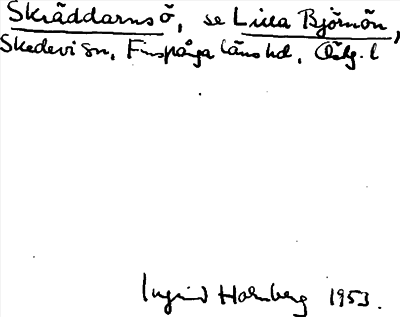 Skräddarnsö, se Lilla Björnön,
Skedevi sn, Finspånga läns hd, Östg. l
Ingrid Holmberg 1953.